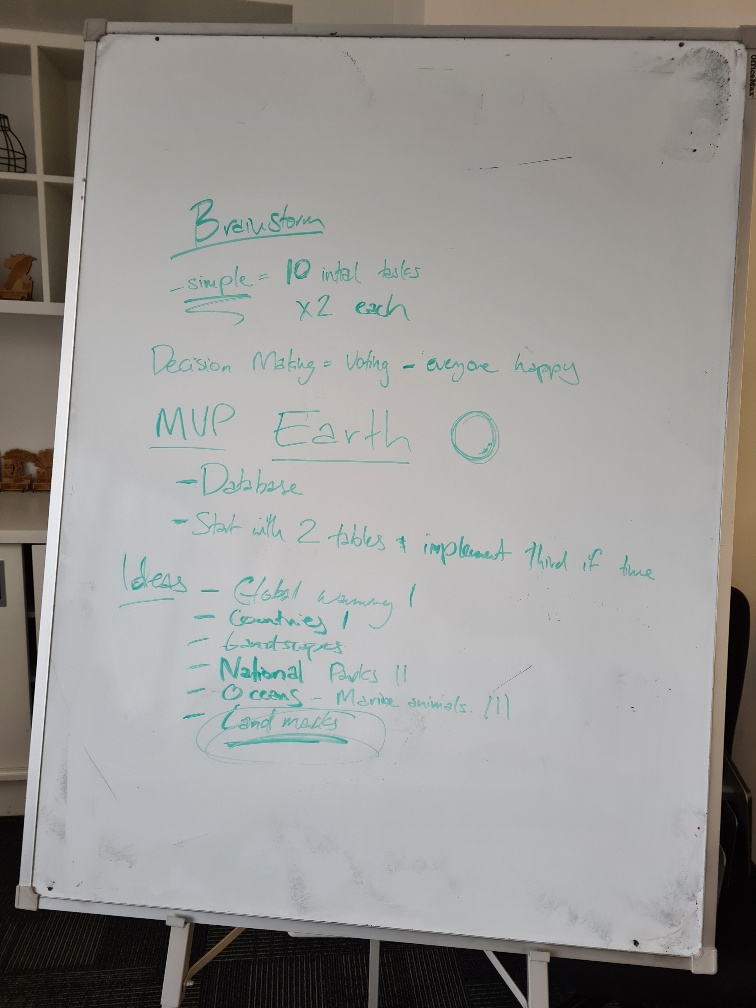 Brainstorm
- simple = 10 intial tasks
x2 each
Decision Making = Voting - everyone happy
MVP Earth
- Database
- Start with 2 tables & implement third if time
Ideas - Global warming |
- Countries |
- Landscapes
- National Parks ||
- Oceans - Marine animals. |||
- Landmarks
OfficeMax